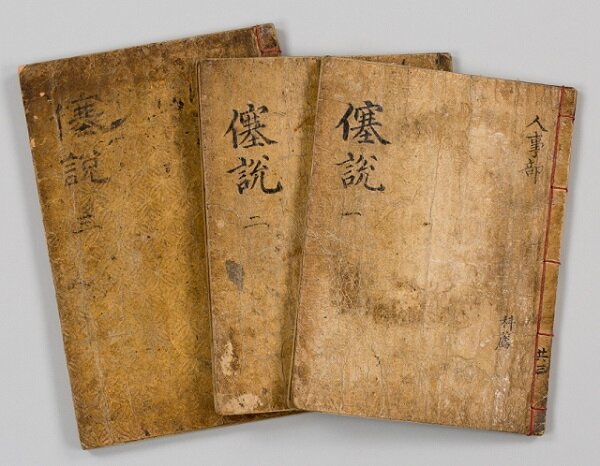 人事部
科薦
共三
僿說 一
僿說 二
僿說 三